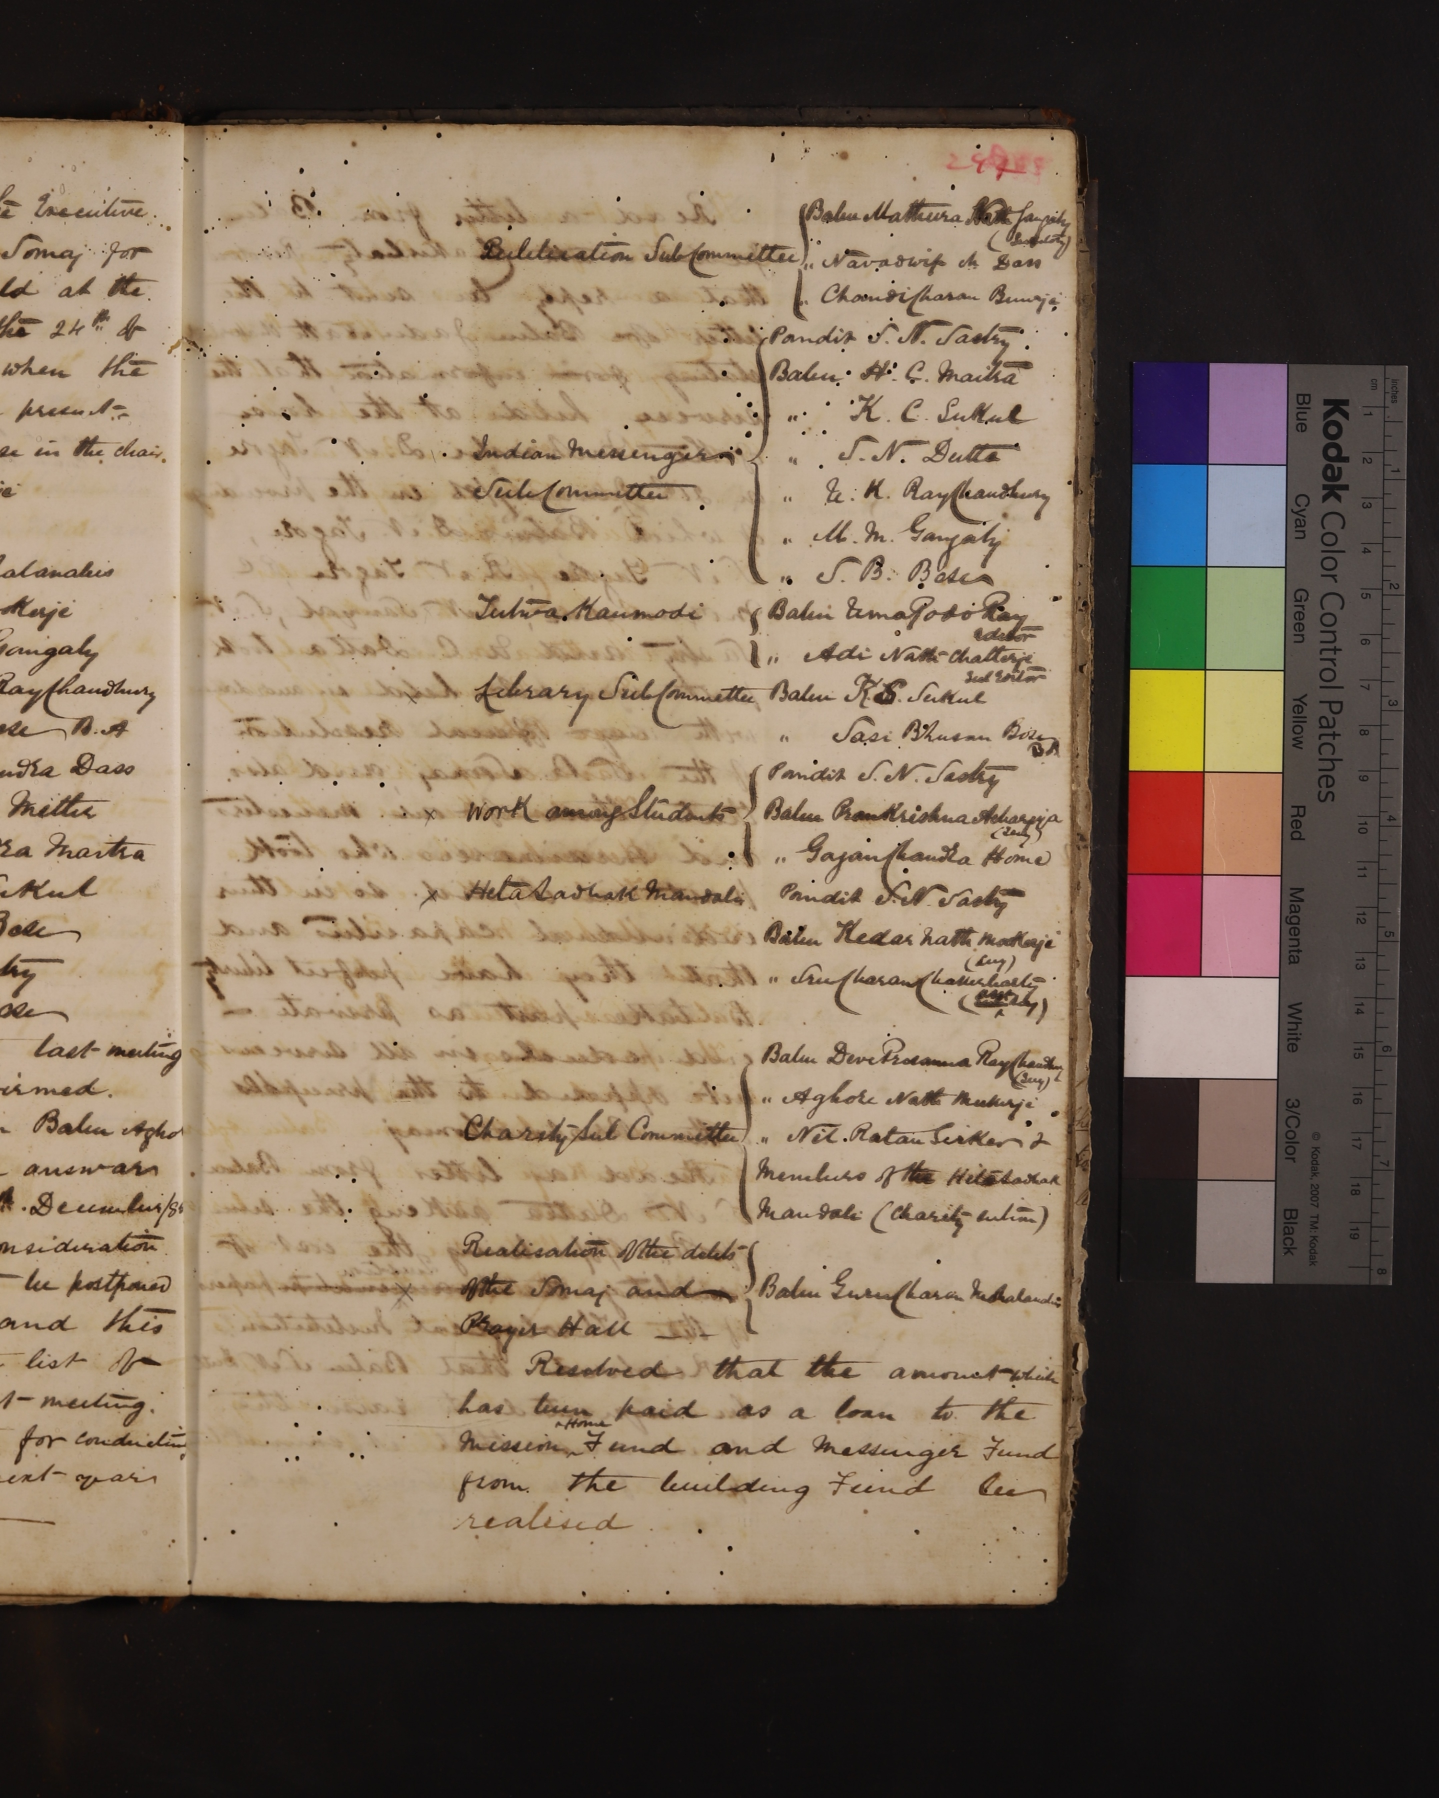 he Executive
Somaj for
ld at the
the 24th of
when the
present
se in the chair.
alanabis
Kerje
Gangaly
RayChaudhury
ose B. A
ndra Dass
Mitter
ra Maitra
ukul
Bose
try
ose
last meeting
firmed.
Babu Agho
answar
th. December/8
onsideration
be postponed
and this
list of
t meeting.
for conductin
ext year
Publication SubCommittee
Babu Mathura Nath Ganguly
(Secretary)
„ Navadwip Ch Dass
„ Chandi Charan Banerjee
Indian Messenger
SubCommittee
Pandit S. N. Sastry
Babu H. C. Maitra
„ K. C. Sukul
„ S. N. Dutta
„ U. K. RayChaudhury
„ M. M. Gangaly
„ S. B. Bose
Tutwa Kaumodi
Babu Uma Podo Ray
editor
„ Adi Nath Chatterje
Sub Editor
Library SubCommittee
Babu K. C. Sukul
„ Sasi Bhusan Bose
B A
x Work among Students
Pandit S. N. Sastry
Babu Prankrishna Acharjya
(Secy)
„ Gagan Chandra Home
x Heta Sadhak Mandali
Pandit S. N. Sastry
Babu Kedar Nath Mookerje
(Secy)
„ Charan Chakerbarty
(asst Secy)
Charity Sub Committee
Babu Devi Prosanna RayChaudhu
(Secy)
„ Aghore Nath Mukerje
„ Nil Ratan Sirker &
Members of the Heta Sadhak
Mandali (Charity section)
x Realisation of the debts
of the Somaj and
Prayer Hall
Babu Guru Charan Mohalanabis
Resolved that the amount which
has been paid as a loan to the
Mission Home Fund and Messenger Fund
from the building Fund be
realised
Kodak Color Control Patches
Blue Cyan Green Yellow Red Magenta White 3/Color Black
© Kodak, 2007 TM: Kodak
inches 1 2 3 4 5 6 7 8
cm 1 2 3 4 5 6 7 8 9 10 11 12 13 14 15 16 17 18 19